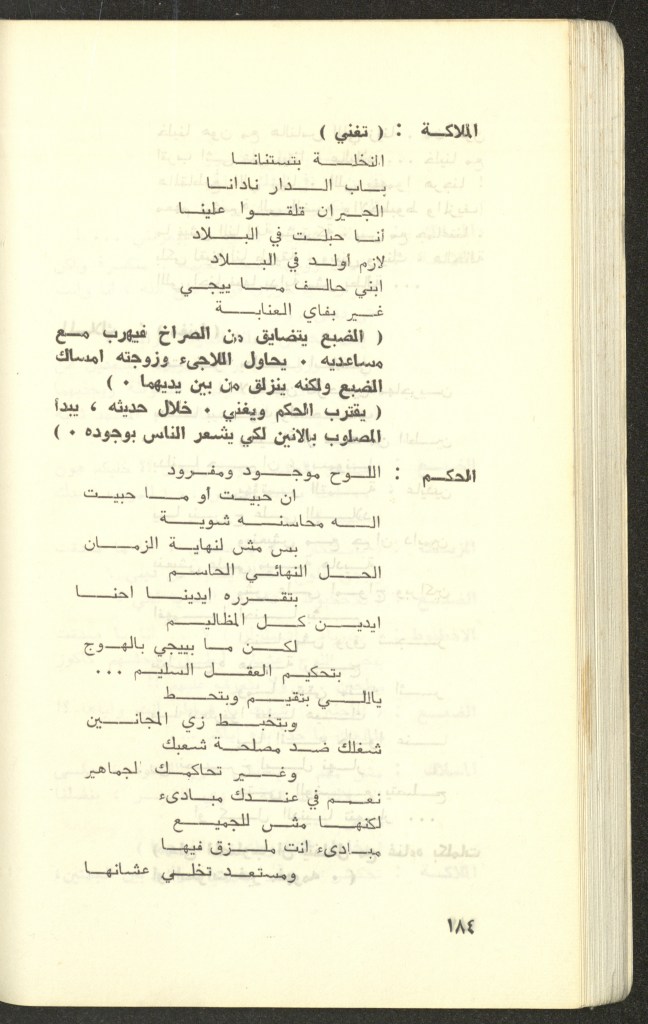 الملاكة : ( تغني )
النخلة بتستنانا
باب الدار نادانا
الجيران قلقوا علينا
أنا حبلت في البلاد
لازم أولد في البلاد
ابني حالف ما ييجي
غير بفاي العنابة
( الضبع يتضايق من الصراخ فيهرب مع
مساعديه . يحاول اللاجىء وزوجته امساك
الضبع ولكنه ينزلق من بين يديهما . )
( يقترب الحكم ويغني . خلال حديثه ، يبدأ
المصلوب بالانين لكي يشعر الناس بوجوده . )
الحكم : اللوح موجود ومفرود
ان حبيت أو ما حبيت
اله محاسنه شوية
بس مش لنهاية الزمان
الحل النهائي الحاسم
بتقرره ايدينا احنا
ايدين كل المظاليم
لكن ما بييجي بالهوج
بتحكيم العقل السليم ...
ياللي بتقيم وبتحط
وبتخبط زي المجانين
شغلك ضد مصلحة شعبك
وغير تحاكمك الجماهير
نعم في عندك مبادىء
لكنها مش للجميع
مبادىء انت ملزق فيها
ومستعد تخلي عشانها
١٨٤